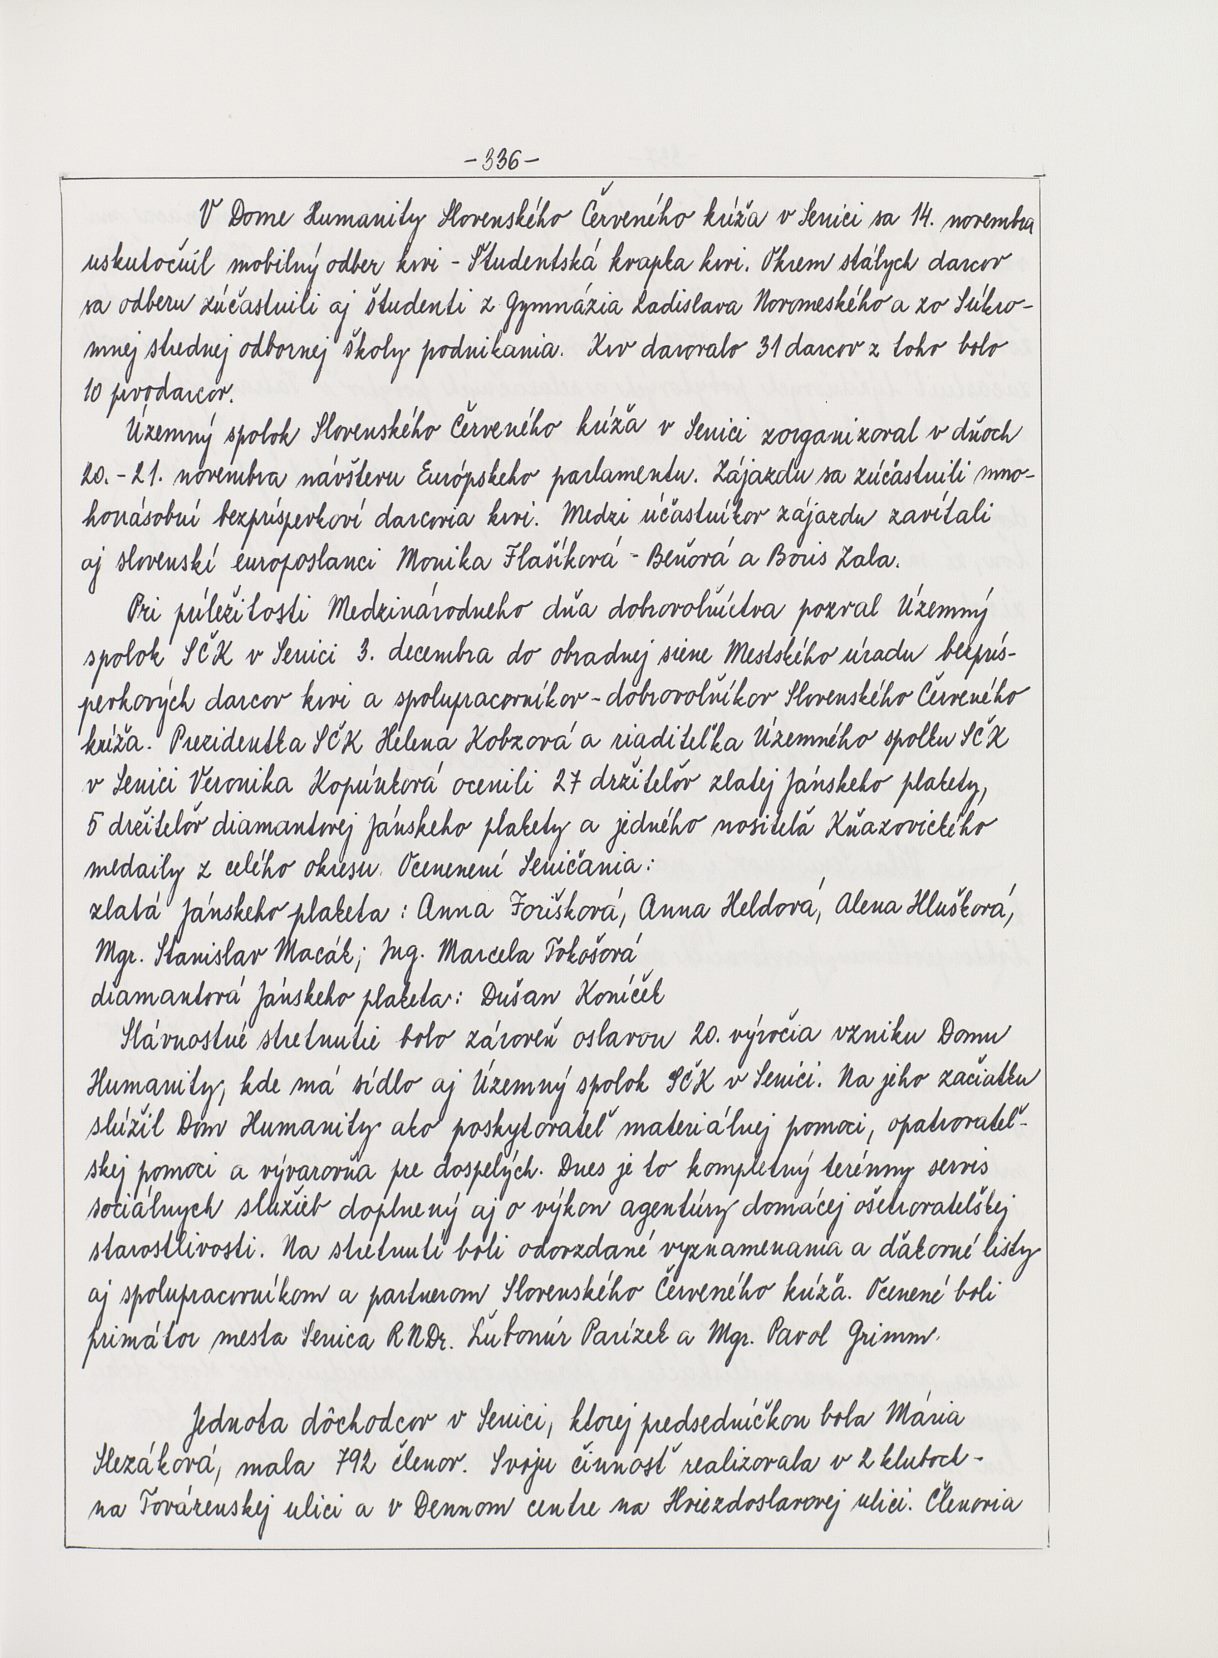 -336-
V Dome Humanity Slovenského Červeného kríža v Senici sa 14. novembra
uskutočnil mobilný odber krvi - Študentská kvapka krvi. Okrem stálych darcov
sa odberu zúčastnili aj študenti z Gymnázia Ladislava Novomeského a zo Súkro-
mnej strednej odbornej školy podnikania. Krv darovalo 31 darcov z toho bolo
10 prvodarcov.
Územný spolok Slovenského Červeného kríža v Senici zorganizoval v dňoch
20. - 21. novembra návštevu Európskeho parlamentu. Zájazdu sa zúčastnili mno-
honásobní bezpríspevkoví darcovia krvi. Medzi účastníkov zájazdu zavítali
aj slovenskí europoslanci Monika Flašíková - Beňová a Boris Zala.
Pri príležitosti Medzinárodneho dňa dobrovoľníctva pozval Územný
spolok SČK v Senici 3. decembra do obradnej siene Mestského úradu bezprís-
pevkových darcov krvi a spolupracovníkov - dobrovoľníkov Slovenského Červeného
kríža. Prezidentka SČK Helena Kobzová a riaditeľka Územného spolku SČK
v Senici Veronika Kopúnková ocenili 27 držiteľov zlatej Jánskeho plakety,
5 držiteľov diamantovej Jánskeho plakety a jedného nositeľa Kňazovického
medaily z celého okresu. Ocenenení Seničania:
zlatá Jánskeho plaketa : Anna Forišková, Anna Heldová, Alena Hlušková,
Mgr. Stanislav Macák; Ing. Marcela Tokošová
diamantová Jánskeho plaketa: Dušan Koníček
Slávnostné stretnutie bolo zároveň oslavou 20. výročia vzniku Domu
Humanity, kde má sídlo aj Územný spolok SČK v Senici. Na jeho začiatku
slúžil Dom Humanity ako poskytovateľ materiálnej pomoci, opatrovateľ-
skej pomoci a vývarovňa pre dospelých. Dnes je to kompletný terénny servis
sociálnych služieb doplnený aj o výkon agentúry domácej ošetrovateľskej
starostlivosti. Na stretnutí boli odovzdané vyznamenania a ďakovné listy
aj spolupracovníkom a partnerom Slovenského Červeného kríža. Ocenené boli
primátor mesta Senica RNDr. Ľubomír Parízek a Mgr. Pavol Grimm.
Jednota dôchodcov v Senici, ktorej predsedníčkou bola Mária
Slezáková, mala 792 členov. Svoju činnosť realizovala v 2 kluboch -
na Továrenskej ulici a v Dennom centre na Hviezdoslavovej ulici. Členovia